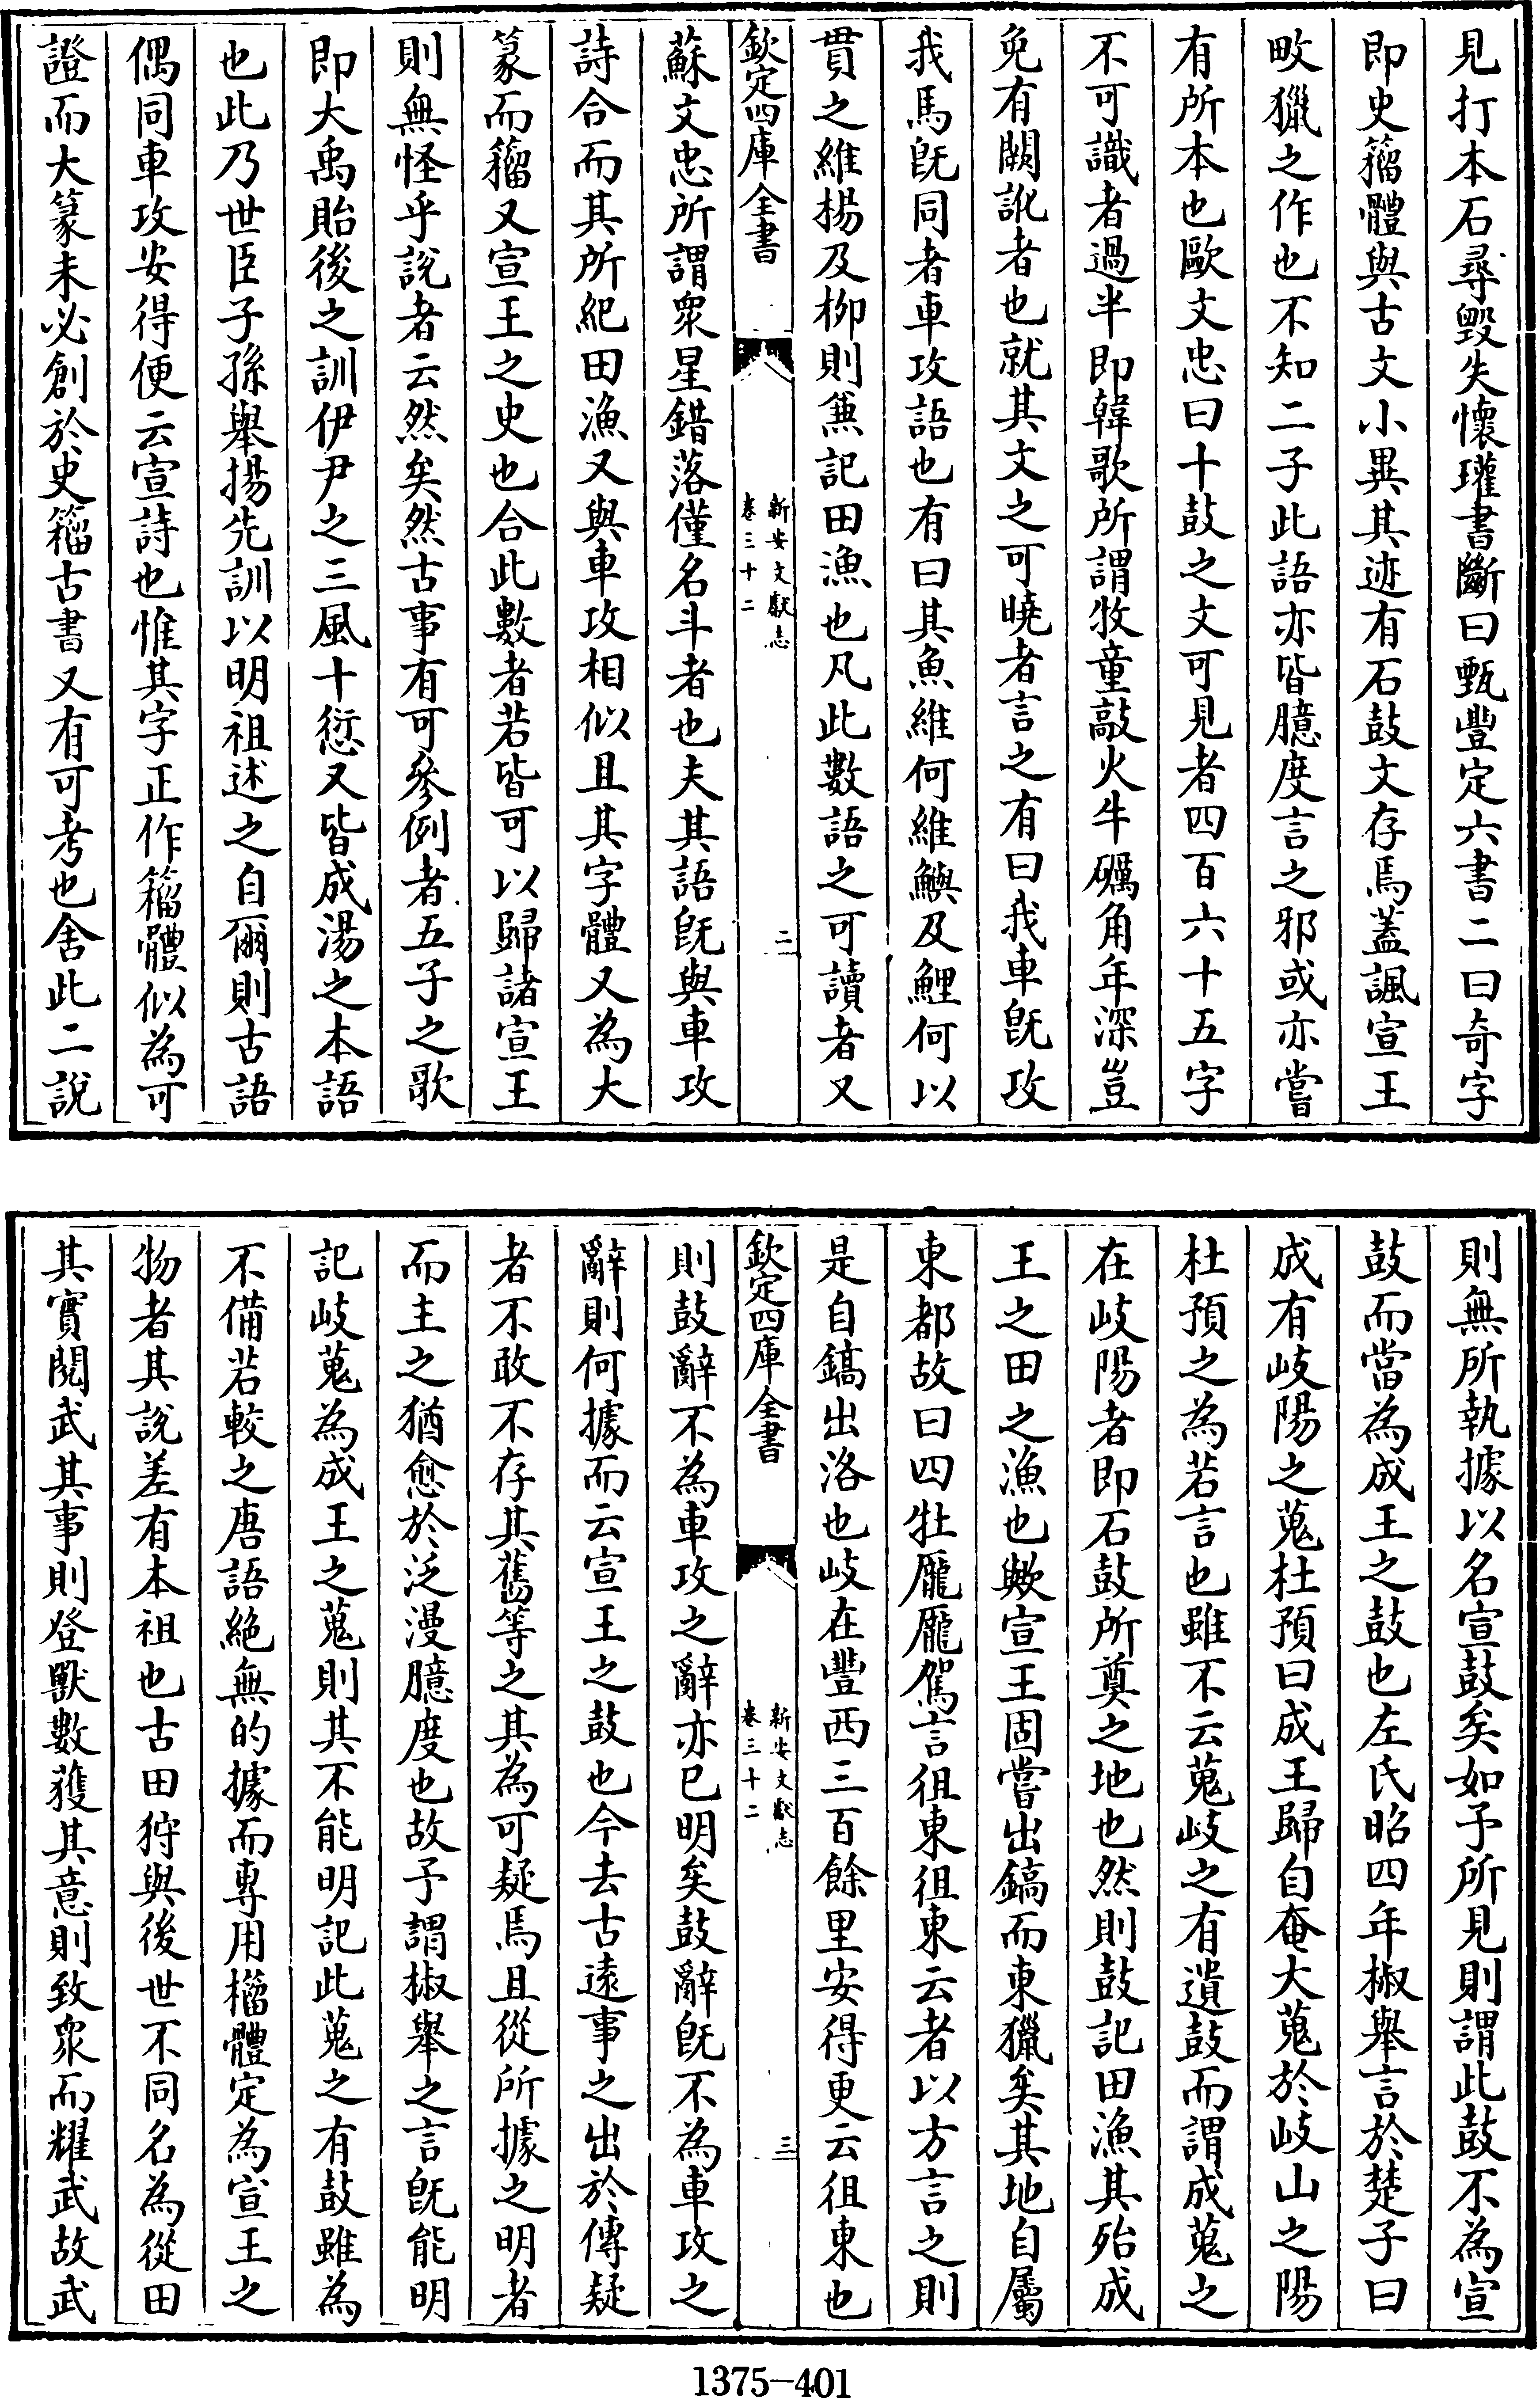 見打本石尋毀失懷瓘書斷曰甄豐定六書二曰奇字
即史籀體與古文小異其迹有石鼓文存焉蓋諷宣王
畋獵之作也不知二子此語亦皆臆度言之邪或亦嘗
有所本也歐文忠曰十鼓之文可見者四百六十五字
不可識者過半即韓歌所謂牧童敲火牛礪角年深豈
免有闕訛者也就其文之可曉者言之有曰我車旣攻
我馬旣同者車攻語也有曰其魚維何維鱮及鯉何以
貫之維楊及柳則兼記田漁也凡此數語之可讀者又
欽定四庫全書
新安文獻志
卷三十二
二
蘇文忠所謂衆星錯落僅名斗者也夫其語旣與車攻
詩合而其所紀田漁又與車攻相似且其字體又為大
篆而籀又宣王之史也合此數者若皆可以歸諸宣王
則無怪乎說者云然矣然古事有可參例者五子之歌
即大禹貽後之訓伊尹之三風十愆又皆成湯之本語
也此乃世臣子孫舉揚先訓以明祖述之自爾則古語
偶同車攻安得便云宣詩也惟其字正作籀體似為可
證而大篆未必創於史籀古書又有可考也舍此二說
則無所執據以名宣鼓矣如予所見則謂此鼓不為宣
鼓而當為成王之鼓也左氏昭四年椒舉言於楚子曰
成有岐陽之蒐杜預曰成王歸自奄大蒐於岐山之陽
杜預之為若言也雖不云蒐岐之有遺鼓而謂成蒐之
在岐陽者即石鼓所奠之地也然則鼓記田漁其殆成
王之田之漁也歟宣王固嘗出鎬而東獵矣其地自屬
東都故曰四牡龐龐駕言徂東徂東云者以方言之則
是自鎬出洛也岐在豐西三百餘里安得更云徂東也
欽定四庫全書
新安文獻志
卷三十二
三
則鼓辭不為車攻之辭亦已明矣鼓辭旣不為車攻之
辭則何據而云宣王之鼓也今去古遠事之出於傳疑
者不敢不存其舊等之其為可疑焉且從所據之明者
而主之猶愈於泛漫臆度也故予謂椒舉之言旣能明
記岐蒐為成王之蒐則其不能明記此蒐之有鼓雖為
不備若較之唐語絕無的據而專用櫂體定為宣王之
物者其說差有本祖也古田狩與後世不同名為從田
其實閱武其事則登獸數獲其意則致衆而耀武故武
1375-401